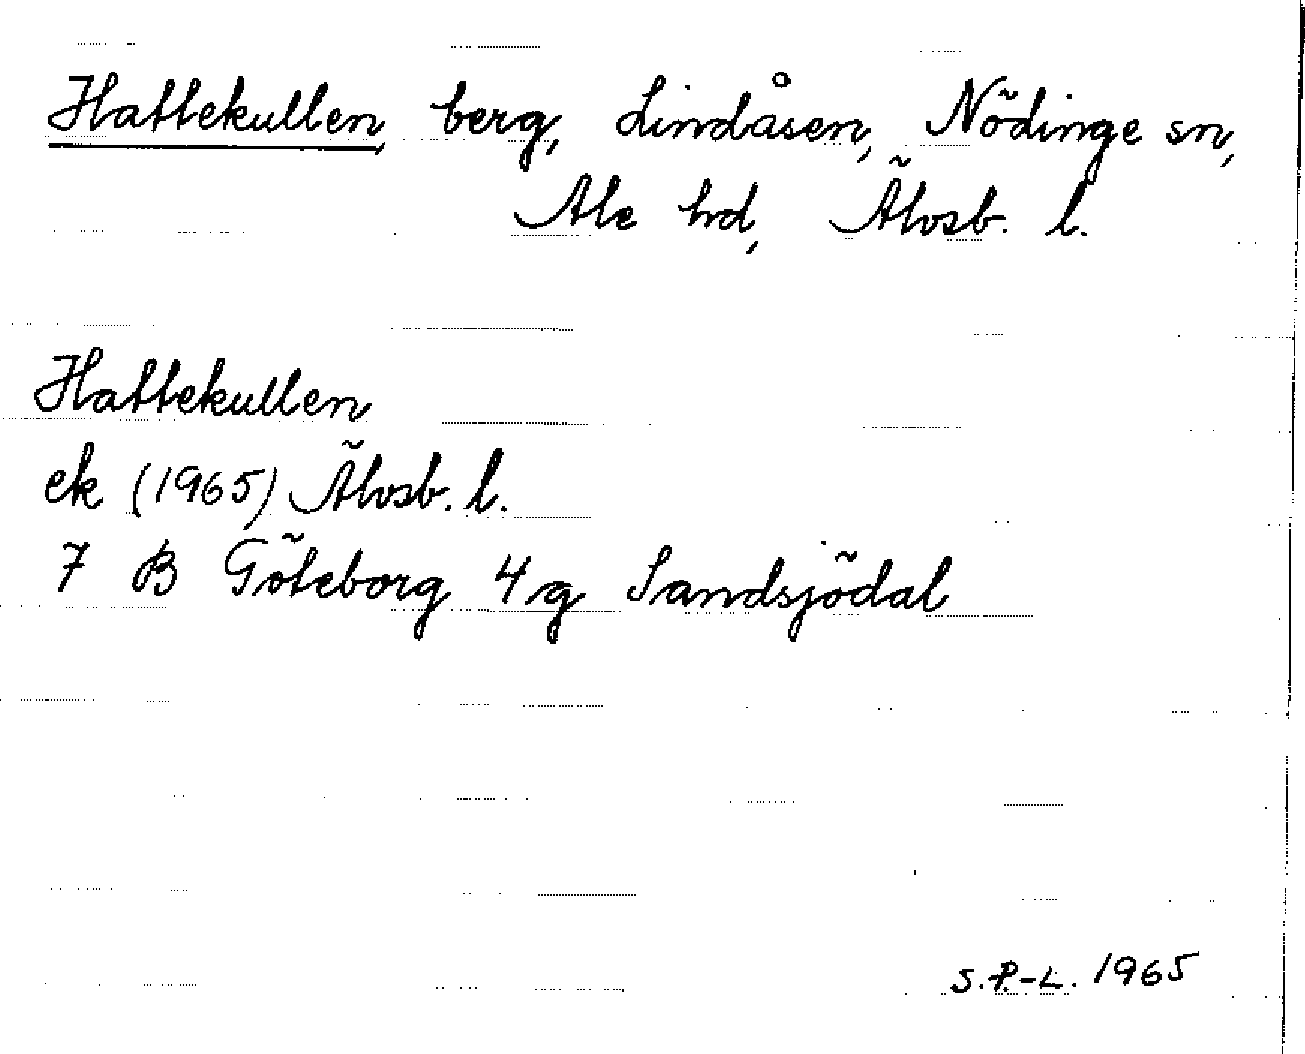 Hattekullen, berg, Lindåsen, Nödinge sn,
Ale hd, Älvsb. l.
Hattekullen
ek (1965) Älvsb. l.
7 B Göteborg 4 g Sandsjödal
S.P.-L. 1965